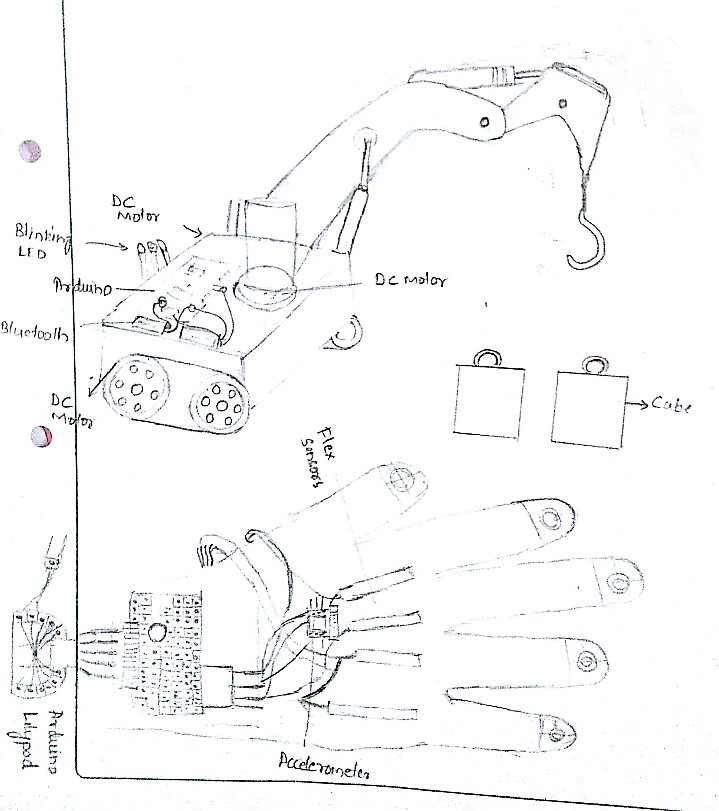 DC
Motor
Blinking
LED
Arduino
Bluetooth
DC Motor
DC
Motor
Cube
Flex
Sensors
Arduino
Lilypad
Accelerometer